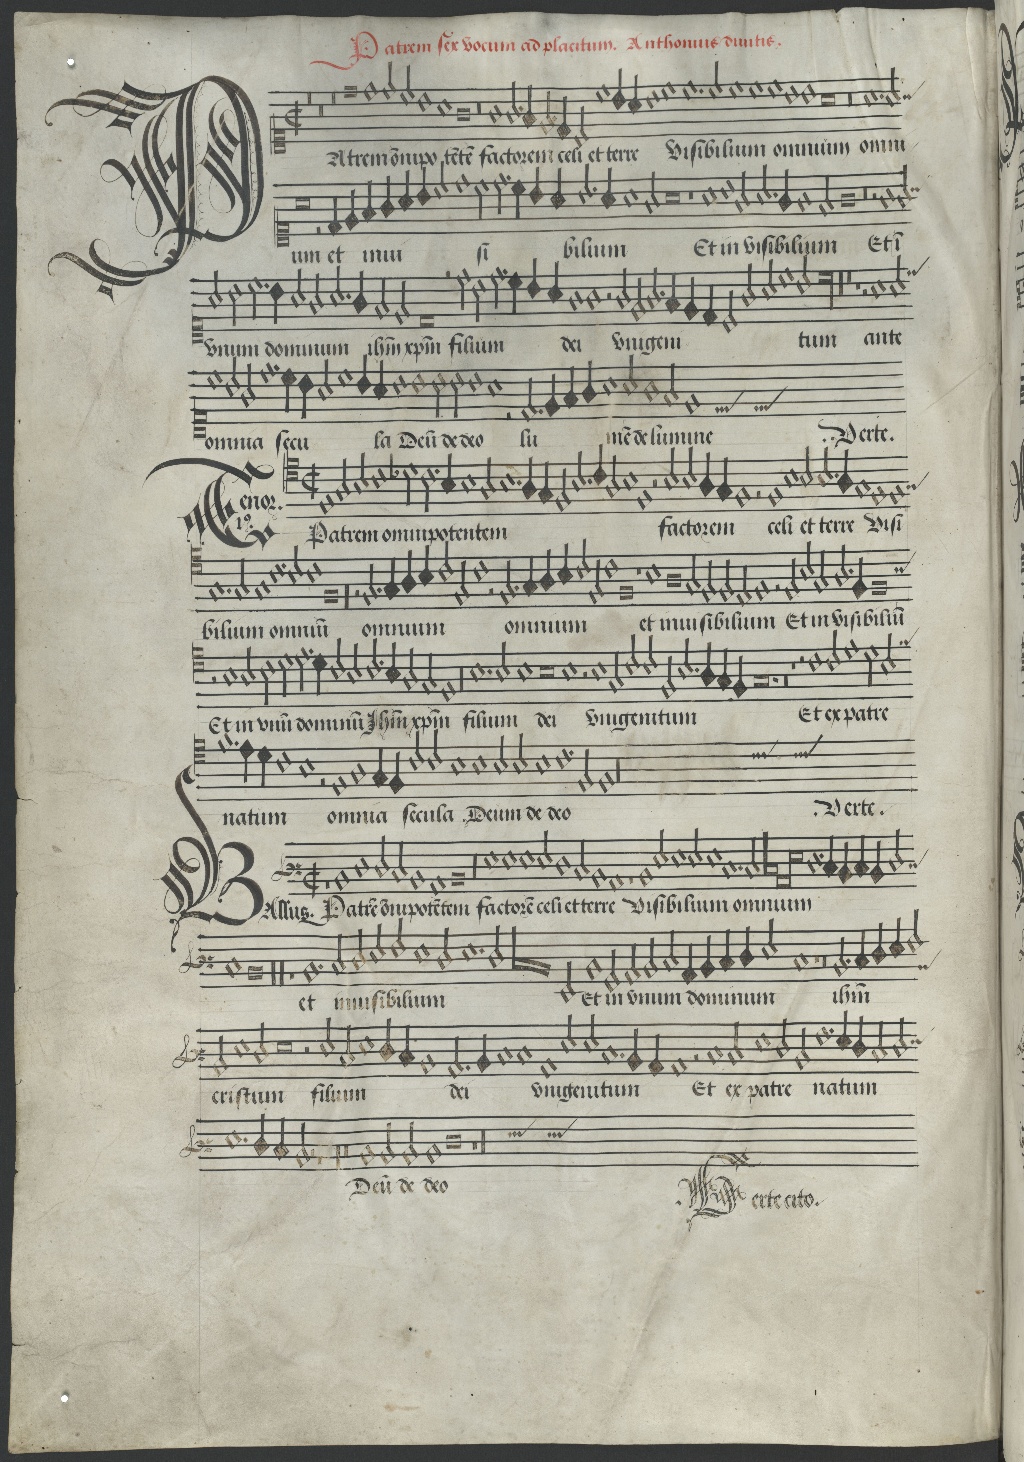 Patrem sex vocum ad placitum. Anthonius divitis.
PAtrem õnipo tẽtẽ factorem celi et terre Visibilium omnium omni
um et inui si bilium Et in visibilium Et ĩ
vnum dominum ihm̃ xpm̃ filium dei vnigeni tum ante
omnia secu la Deũ de deo lu mẽ de lumine Verte.
Tenor. 1º. Patrem omnipotentem factorem celi et terre Visi
bilium omniũ omnium omnium et inuisibilium Et in visibiliũ
Et in vnũ dominũ Ihm̃ xpm̃ filium dei vnigenitum Et ex patre
natum omnia secula Deum de deo Verte.
BAssus. Patrẽ õnipotẽtem factorẽ celi et terre Visibilium omnium
et inuisibilium Et in vnum dominum ihm̃
cristum filium dei vnigenitum Et ex patre natum
Deũ de deo Verte cito.